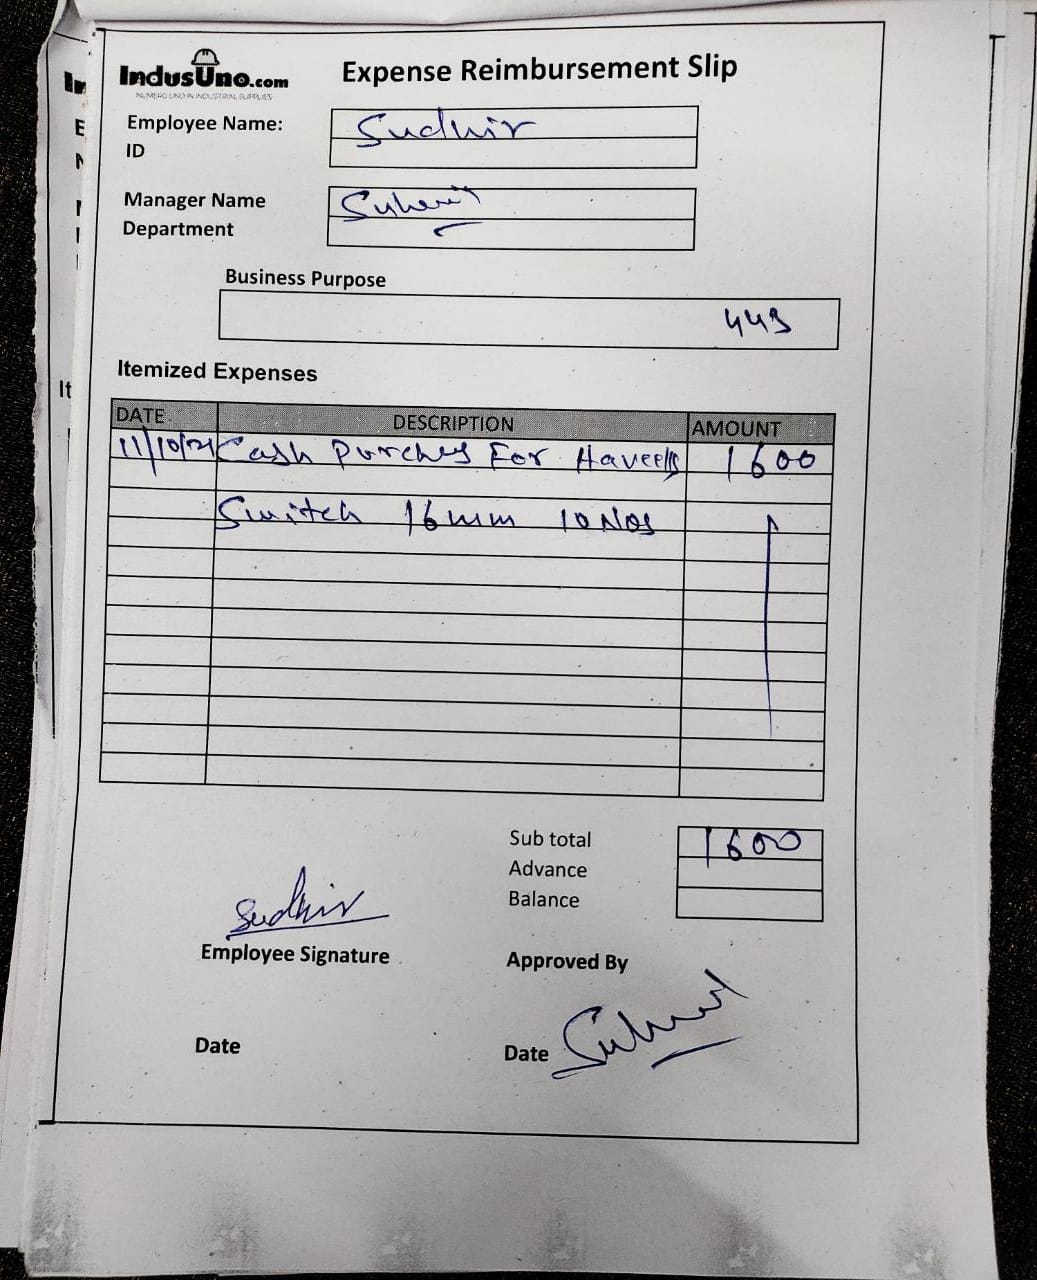 IndusUno.com
NUMERO UNO IN INDUSTRIAL SUPPLIES
Expense Reimbursement Slip
Employee Name: Sudhir
ID
Manager Name
Department
Business Purpose
449
Itemized Expenses
DATE DESCRIPTION AMOUNT
11/10/21 Cash Purches For Haveells 1600
Switch 16mm 10 Nos
Sub total 1600
Advance
Balance
Sudhir
Employee Signature
Approved By
Date
Date